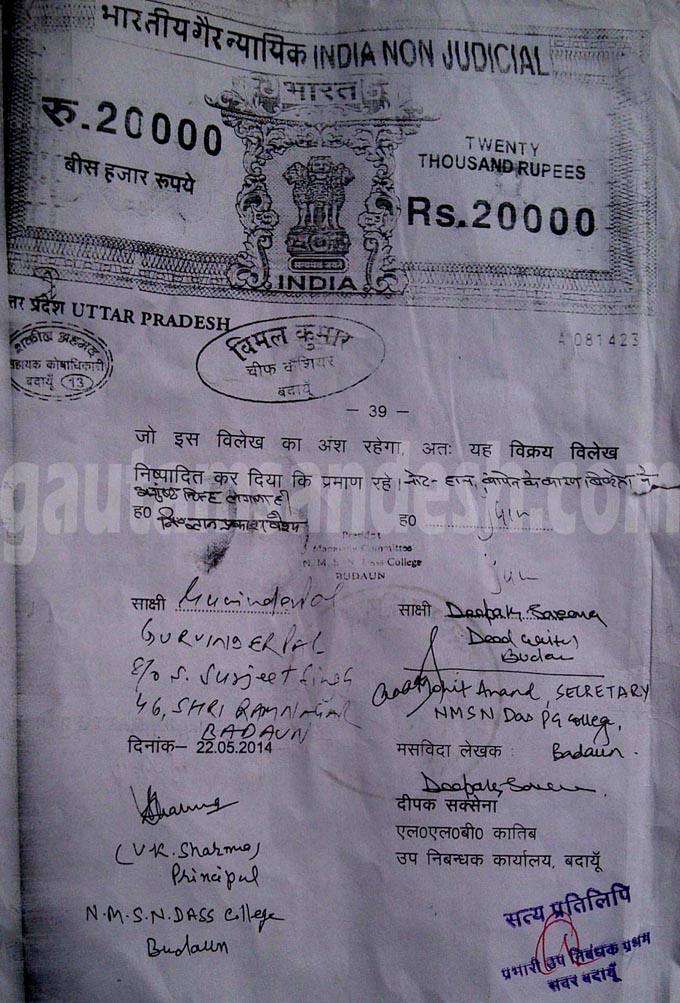 भारतीय गैर न्यायिक INDIA NON JUDICIAL
भारत
रु.20000
बीस हजार रुपये
TWENTY
THOUSAND RUPEES
Rs.20000
सत्यमेव जयते
INDIA
त्तर प्रदेश UTTAR PRADESH
A 081423
सहायक कोषाधिकारी
बदायूँ 13
विमल कुमार
चीफ कैशियर
बदायूँ
– 39 –
जो इस विलेख का अंश रहेगा, अतः यह विक्रय विलेख
निष्पादित कर दिया कि प्रमाण रहे।
ह0
ह0
President
Managing Committee
N. M. S. N. Dass College
BUDAUN
साक्षी
GURVINDERPAL
S/o S. Surjeet Singh
46, SHRI RAMNAGAR
BADAUN
दिनांक– 22.05.2014
साक्षी Deepak Saxena
Deed writer
Budaun
Mohit Anand, SECRETARY
NMSN Das PG College,
Badaun.
मसविदा लेखक :
दीपक सक्सेना
एल0एल0बी0 कातिब
उप निबन्धक कार्यालय, बदायूँ
VKSharma
(V.K. Sharma)
Principal
N.M.S.N. DASS College
Budaun
सत्य प्रतिलिपि
प्रभारी उप निबंधक प्रथम
सदर बदायूँ
gautamsandesh.com